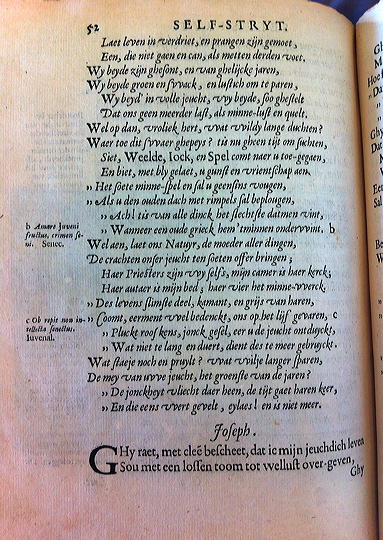 52 SELF-STRYT.
Laet leven in verdriet, en prangen zijn gemoet,
Een, die niet gaen en can, als metten derden voet.
Wy beyde zijn ghesont, en van ghelijcke jaren,
Wy beyde groen en swack, en lustich om te paren,
Wy beyd' in volle jeucht, wy beyde, soo ghestelt
Dat ons geen meerder last, als minne-lust en quelt.
Wel op dan, vroliek hert, wat wildy lange duchten?
Waer toe dit swaer ghepeys? tis nu gheen tijt om suchten,
Siet, Weelde, Iock, en Spel comt naer u toe-gegaen,
En biet, met bly gelaet, u gunst en vrientschap aen.
„ Het soete minne-spel en sal u geensins vougen,
„ Als u den ouden dach met rimpels sal beplougen,
„ Ach! tis van alle dinck het slechtste datmen vint,
„ Wanneer een oude grieck hem t'minnen onderwint. b
b Amare Juveni
fructus, crimen se-
ni. Senec.
Wel aen, laet ons Natuyr, de moeder aller dingen,
De crachten onser jeucht ten soeten offer bringen;
Haer Priesters zijn wy selfs, mijn camer is haer kerck;
Haer autaer is mijn bed; haer vier het minne-werck.
„ Des levens slimste deel, kamant, en grijs van haren,
„ Coomt, eerment wel bedenckt, ons op het lijf gevaren, c
c Ob repit non in-
tellecta senectus.
Iuvenal.
„ Pluckt roos kens, jonck gesel, eer u de jeucht ontduyckt,
„ Wat niet te lang en duert, dient des te meer gebruyckt.
Wat staeje noch en pruylt? wat wilje langer sparen,
De mey van uwe jeucht, het groenste van de jaren?
„ De jonckheyt vliecht daer heen, de tijt gaet haren keer,
„ En die eens wert gevelt, eylaes! en is niet meer.
Joseph.
GHy raet, met cleē bescheet, dat ic mijn jeuchdich leven
Sou met een lossen toom tot wellust over-geven,
Ghy